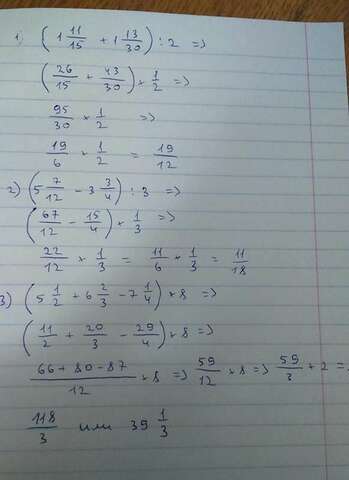 1) (1 11/15 + 1 13/30) : 2 =>
(26/15 + 43/30) * 1/2 =>
95/30 * 1/2 =>
19/6 * 1/2 = 19/12
2) (5 7/12 - 3 3/4) : 3 =>
(67/12 - 15/4) * 1/3 =>
22/12 * 1/3 = 11/6 * 1/3 = 11/18
3) (5 1/2 + 6 2/3 - 7 1/4) * 8 =>
(11/2 + 20/3 - 29/4) * 8 =>
66 + 80 - 87/12 * 8 => 59/12 * 8 => 59/3 * 2 =
118/3 или 39 1/3